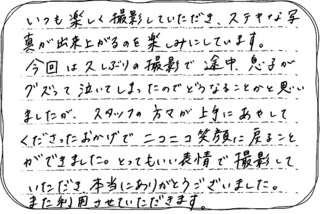 いつも楽しく撮影していただき、ステキな写
真が出来上がるのを楽しみにしています。
今回は久しぶりの撮影で途中、息子が
グズって泣いてしまったのでどうなることかと思い
ましたが、スタッフの方々が上手にあやして
くださったおかげでニコニコ笑顔に戻ること
ができました。とってもいい表情で撮影して
いただき本当にありがとうございました。
また利用させていただきます。